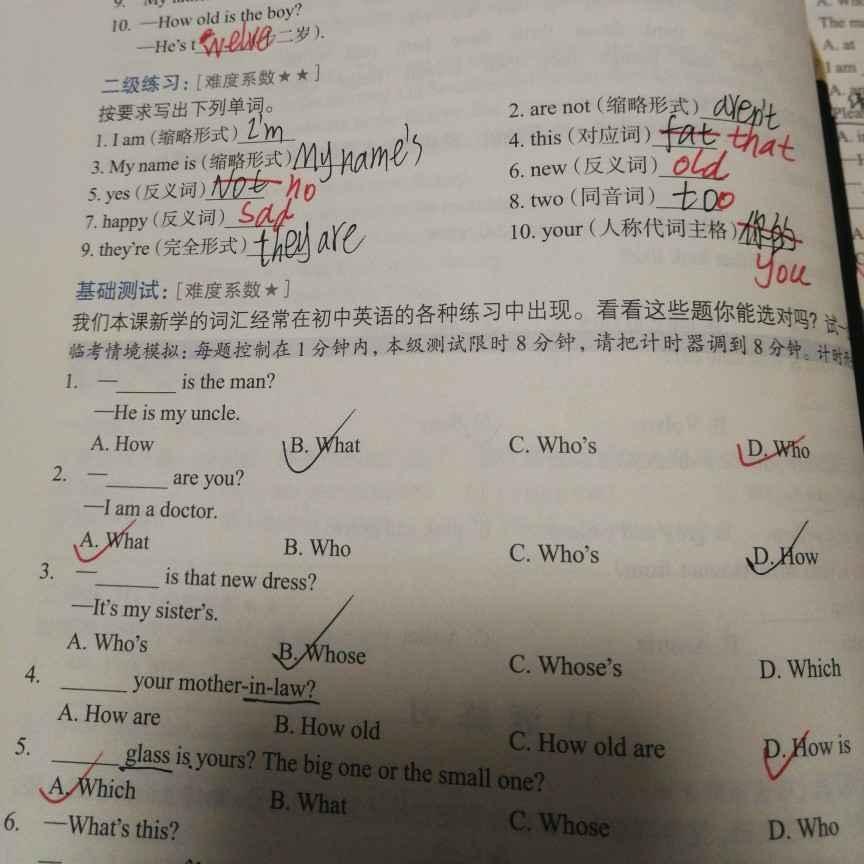 10. —How old is the boy?
—He's twelve(十二岁).
二级练习：[难度系数★★]
按要求写出下列单词。
1. I am (缩略形式) I'm
2. are not (缩略形式) aren't
3. My name is (缩略形式) My name's
4. this (对应词) fat that
5. yes (反义词) Not no
6. new (反义词) old
7. happy (反义词) Sad
8. two (同音词) too
9. they're (完全形式) they are
10. your (人称代词主格) 你的 you
基础测试：[难度系数★]
我们本课新学的词汇经常在初中英语的各种练习中出现。看看这些题你能选对吗？试一
临考情境模拟：每题控制在 1 分钟内，本级测试限时 8 分钟，请把计时器调到 8 分钟。计时
1. —______ is the man?
—He is my uncle.
A. How B. What C. Who's D. Who
2. —______ are you?
—I am a doctor.
A. What B. Who C. Who's D. How
3. —______ is that new dress?
—It's my sister's.
A. Who's B. Whose C. Whose's D. Which
4. ______ your mother-in-law?
A. How are B. How old C. How old are D. How is
5. ______ glass is yours? The big one or the small one?
A. Which B. What C. Whose D. Who
6. —What's this?
The
A. at
I am